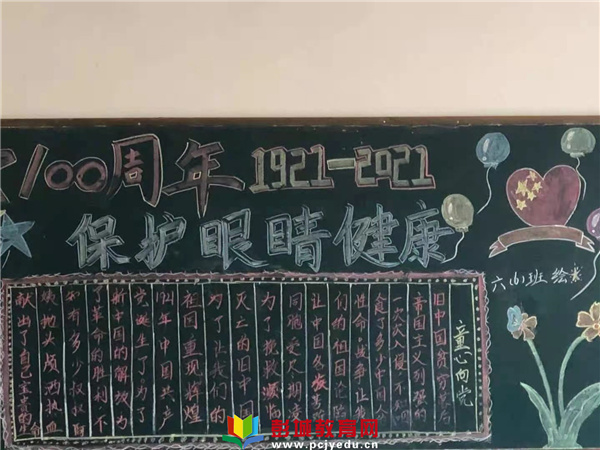 100周年 1921-2021
保护眼睛健康
童心向党
旧中国贫穷落后
帝国主义列强的
一次次入侵不知
了多少中国人
性命战争让人
们的
让中国名族
同胞受尽期凌
为了挽救濒临
灭亡的旧中国
为了让我们的
国重现辉煌
1921年中国共产
党诞生了为了
新中国的解放为
了革命的胜利不
知有多少叔叔
姨抛头颅热血
献出了自己宝贵的命
六(6)班 绘
教育网
www.pcjyedu.com